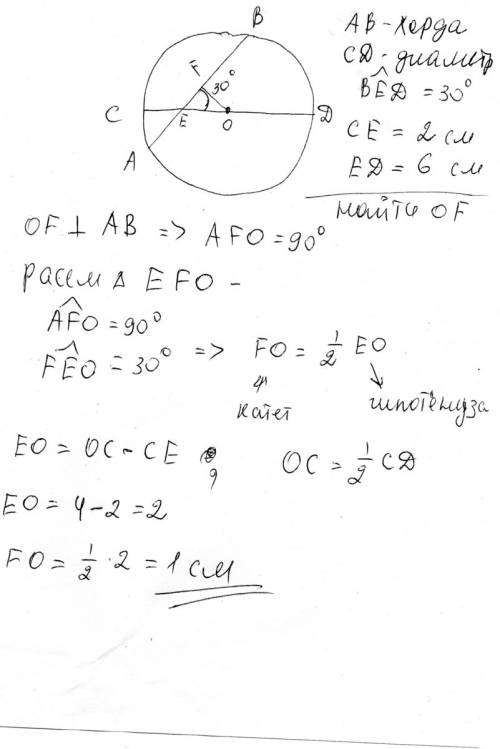 B
F
30°
C
E
O
D
A
AB - хорда
CD - диаметр
BED = 30°
CE = 2 см
ED = 6 см
найти OF
OF ⊥ AB => AFO = 90°
рассм Δ EFO -
AFO = 90°
FEO = 30° => FO = 1/2 EO
катет гипотенуза
EO = OC - CE , OC = 1/2 CD
EO = 4 - 2 = 2
FO = 1/2 · 2 = 1 см